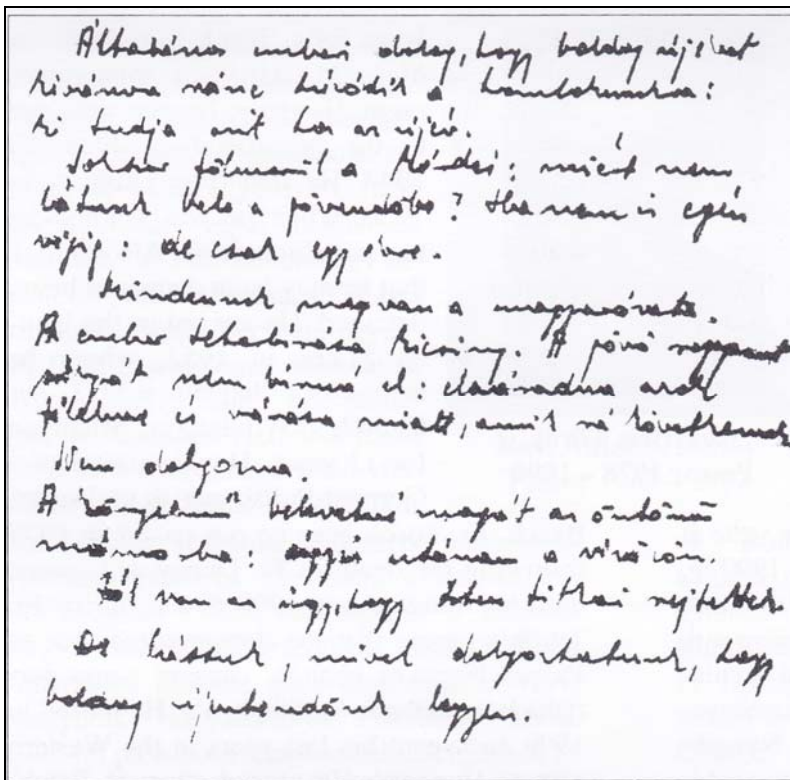 Általános emberi dolog, hogy boldog újévet
kívánva ránc húzódik a homlokunkra:
ki tudja mit hoz az újév.
Sokszor fölmerül a kérdés: miért nem
látunk bele a jövendőbe? Ha nem is egész
végig: de csak egy évre.
Mindennek megvan a magyarázata.
Az ember teherbírása kicsiny. A jövő
súlyát nem bírna el:
és
miatt amik rá következnek.
Nem dolgozna.
A belevetné magát az
mámorba: a
Jól van az úgy, hogy Isten titkai rejtettek.
De lássunk, mivel dolgozhatunk, hogy
boldog újesztendőnk legyen.